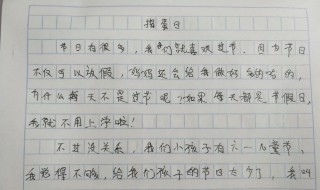 捣蛋日
节日有很多，我们就喜欢过节。因为节日
不仅可以放假，妈妈还会给我做好多好吃的，
为什么每天不是过节呢？如果每天都是节假日，
我就不用上学啦！
不过没关系，我们小孩子有六一儿童节，
我觉得不够，给我们孩子的节日太少了，我